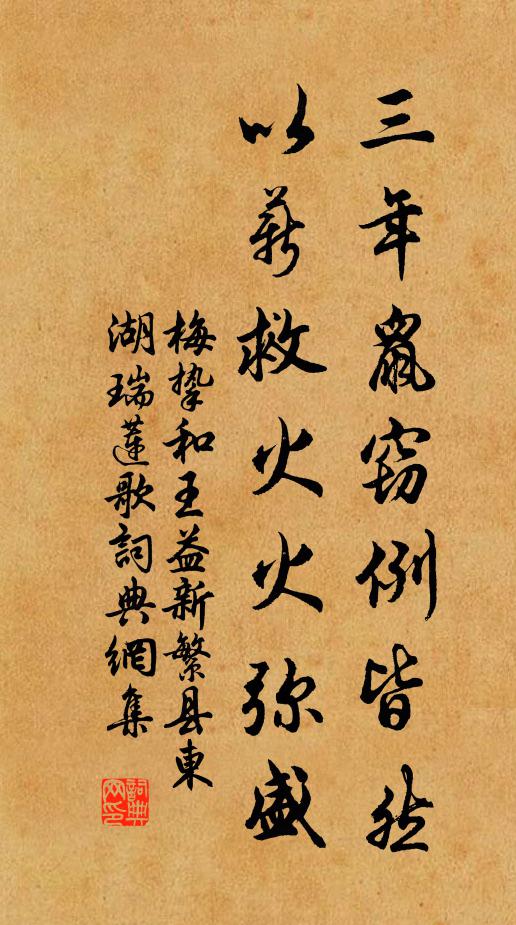 三年鼠窃例皆然
以薪救火火弥盛
梅挚和王益新繁县東
湖瑞蓮歌詞典網集
詞典
网印